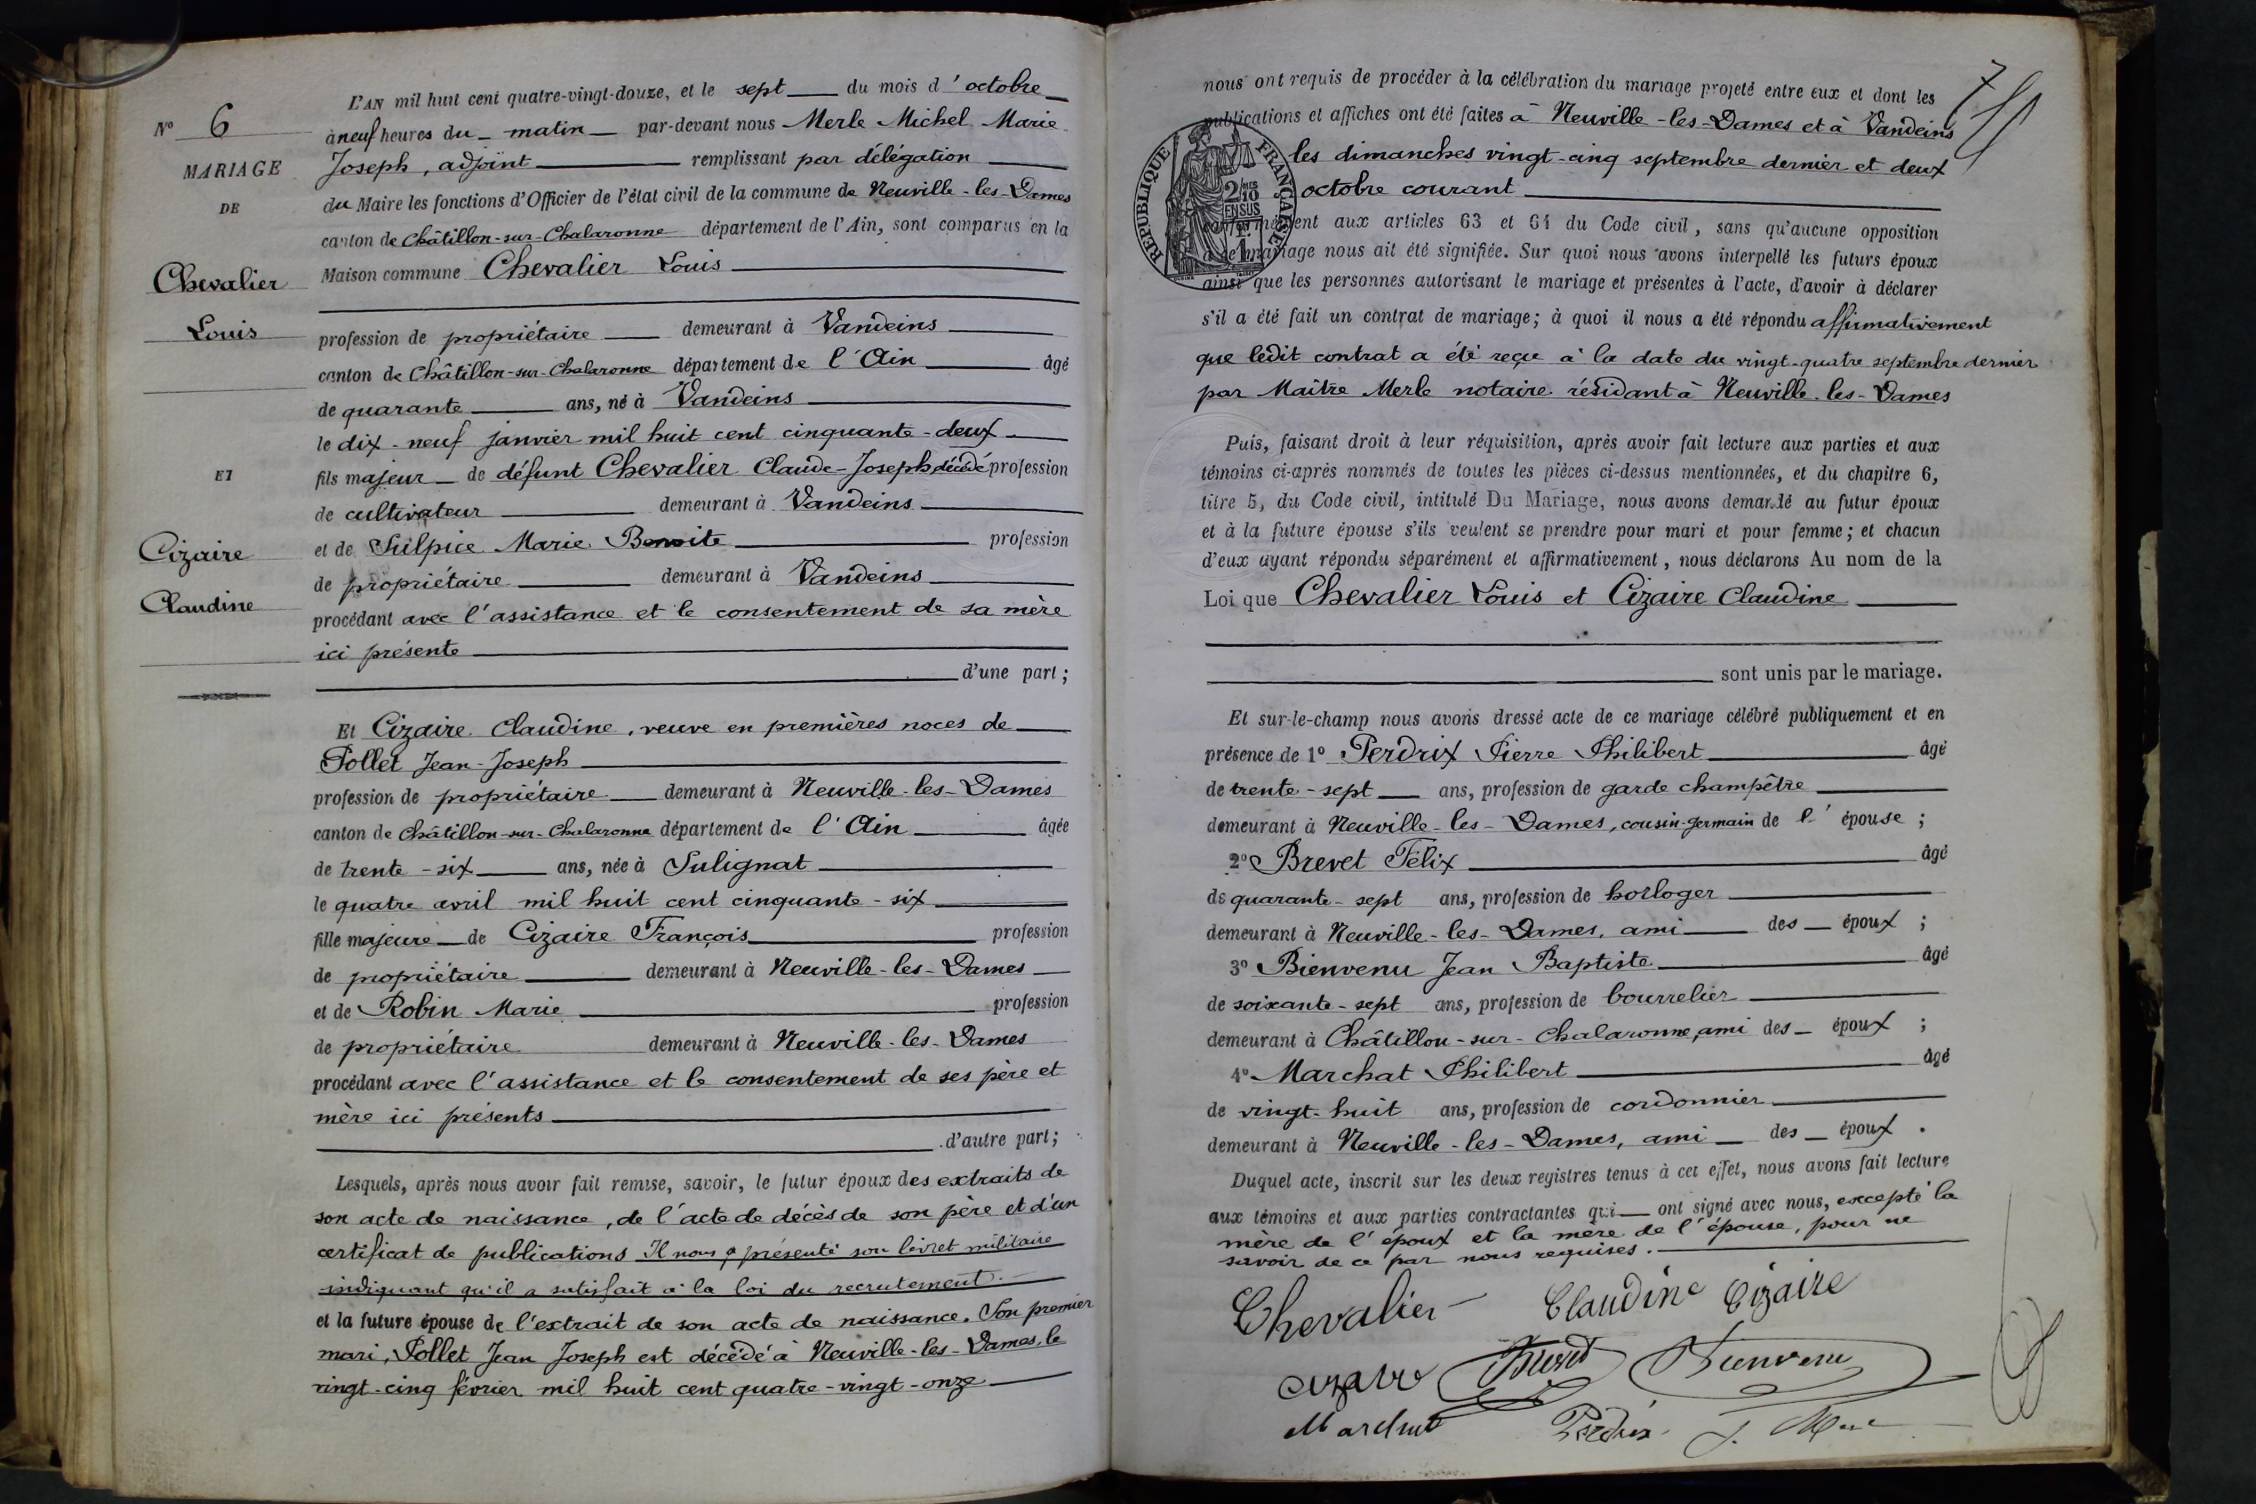 L'AN mil huit cent quatre-vingt-douze, et le sept du mois d'octobre
N° 6
à neuf heures du matin par-devant nous Merle Michel Marie
MARIAGE
Joseph, adjoint remplissant par délégation
DE
du Maire les fonctions d'Officier de l'état civil de la commune de Neuville-les-Dames
canton de Châtillon-sur-Chalaronne département de l'Ain, sont comparus en la
Chevalier
Maison commune Chevalier Louis
Louis
profession de propriétaire demeurant à Vandeins
canton de Châtillon-sur-Chalaronne département de l'Ain âgé
de quarante ans, né à Vandeins
le dix-neuf janvier mil huit cent cinquante-deux
ET
fils majeur de défunt Chevalier Claude-Joseph décédé profession
de cultivateur demeurant à Vandeins
Cizaire
et de Sulpice Marie Benoite profession
de propriétaire demeurant à Vandeins
Claudine
procédant avec l'assistance et le consentement de sa mère
ici présente
d'une part;
Et Cizaire Claudine, veuve en premières noces de
Pollet Jean-Joseph
profession de propriétaire demeurant à Neuville-les-Dames
canton de Châtillon-sur-Chalaronne département de l'Ain âgée
de trente-six ans, née à Sulignat
le quatre avril mil huit cent cinquante-six
fille majeure de Cizaire François profession
de propriétaire demeurant à Neuville-les-Dames
et de Robin Marie profession
de propriétaire demeurant à Neuville-les-Dames
procédant avec l'assistance et le consentement de ses père et
mère ici présents
d'autre part;
Lesquels, après nous avoir fait remise, savoir, le futur époux des extraits de
son acte de naissance, de l'acte de décès de son père et d'un
certificat de publications Il nous a présenté son livret militaire
indiquant qu'il a satisfait à la loi du recrutement.
et la future épouse de l'extrait de son acte de naissance. Son premier
mari, Pollet Jean Joseph est décédé à Neuville-les-Dames, le
vingt-cinq février mil huit cent quatre-vingt-onze
nous ont requis de procéder à la célébration du mariage projeté entre eux et dont les
publications et affiches ont été faites à Neuville-les-Dames et à Vandeins
les dimanches vingt-cinq septembre dernier et deux
octobre courant
RÉPUBLIQUE FRANÇAISE
2/10 EN SUS
conformément aux articles 63 et 64 du Code civil, sans qu'aucune opposition
à ce mariage nous ait été signifiée. Sur quoi nous avons interpellé les futurs époux
ainsi que les personnes autorisant le mariage et présentes à l'acte, d'avoir à déclarer
s'il a été fait un contrat de mariage; à quoi il nous a été répondu affirmativement
que ledit contrat a été reçu à la date du vingt-quatre septembre dernier
par Maître Merle notaire résidant à Neuville-les-Dames
Puis, faisant droit à leur réquisition, après avoir fait lecture aux parties et aux
témoins ci-après nommés de toutes les pièces ci-dessus mentionnées, et du chapitre 6,
titre 5, du Code civil, intitulé Du Mariage, nous avons demandé au futur époux
et à la future épouse s'ils veulent se prendre pour mari et pour femme; et chacun
d'eux ayant répondu séparément et affirmativement, nous déclarons Au nom de la
Loi que Chevalier Louis et Cizaire Claudine
sont unis par le mariage.
Et sur-le-champ nous avons dressé acte de ce mariage célébré publiquement et en
présence de 1° Perdrix Pierre Philibert âgé
de trente-sept ans, profession de garde champêtre
demeurant à Neuville-les-Dames, cousin-germain de l'épouse;
2° Brevet Félix âgé
de quarante-sept ans, profession de horloger
demeurant à Neuville-les-Dames, ami des époux;
3° Bienvenu Jean Baptiste âgé
de soixante-sept ans, profession de bourrelier
demeurant à Châtillon-sur-Chalaronne, ami des époux;
4° Marchat Philibert âgé
de vingt-huit ans, profession de cordonnier
demeurant à Neuville-les-Dames, ami des époux.
Duquel acte, inscrit sur les deux registres tenus à cet effet, nous avons fait lecture
aux témoins et aux parties contractantes qui ont signé avec nous, excepté la
mère de l'époux et la mère de l'épouse, pour ne
savoir de ce par nous requises.
Chevalier Claudine Cizaire
Cizaire Brevet Bienvenu
Marchat Perdrix J. Merle